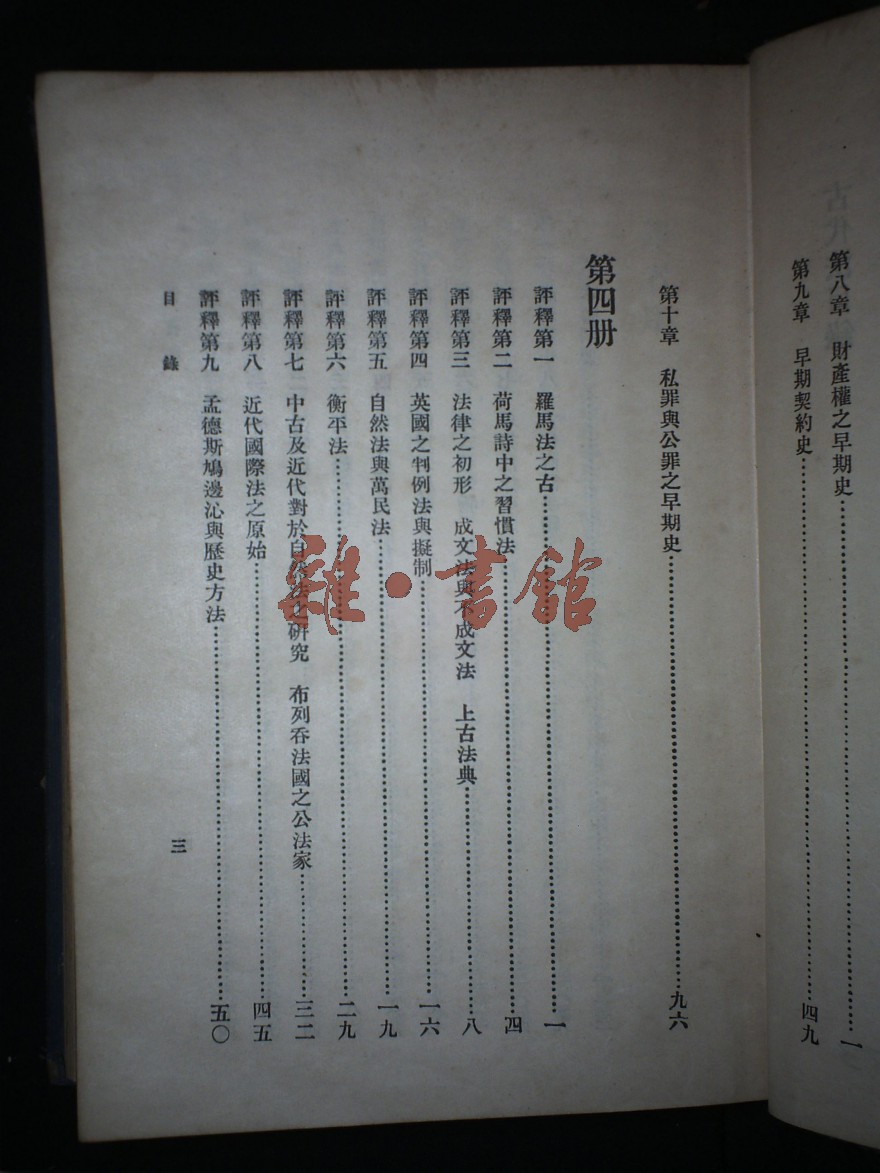 第八章 財產權之早期史…………一
第九章 早期契約史…………四九
第十章 私罪與公罪之早期史…………九六
第四册
評釋第一 羅馬法之古…………一
評釋第二 荷馬詩中之習慣法…………四
評釋第三 法律之初形 成文法與不成文法 上古法典…………八
評釋第四 英國之判例法與擬制…………一六
評釋第五 自然法與萬民法…………一九
評釋第六 衡平法…………二九
評釋第七 中古及近代對於自然法之研究 布列吞法國之公法家…………三二
評釋第八 近代國際法之原始…………四五
評釋第九 孟德斯鳩邊沁與歷史方法…………五〇
目錄
三
雜·書館